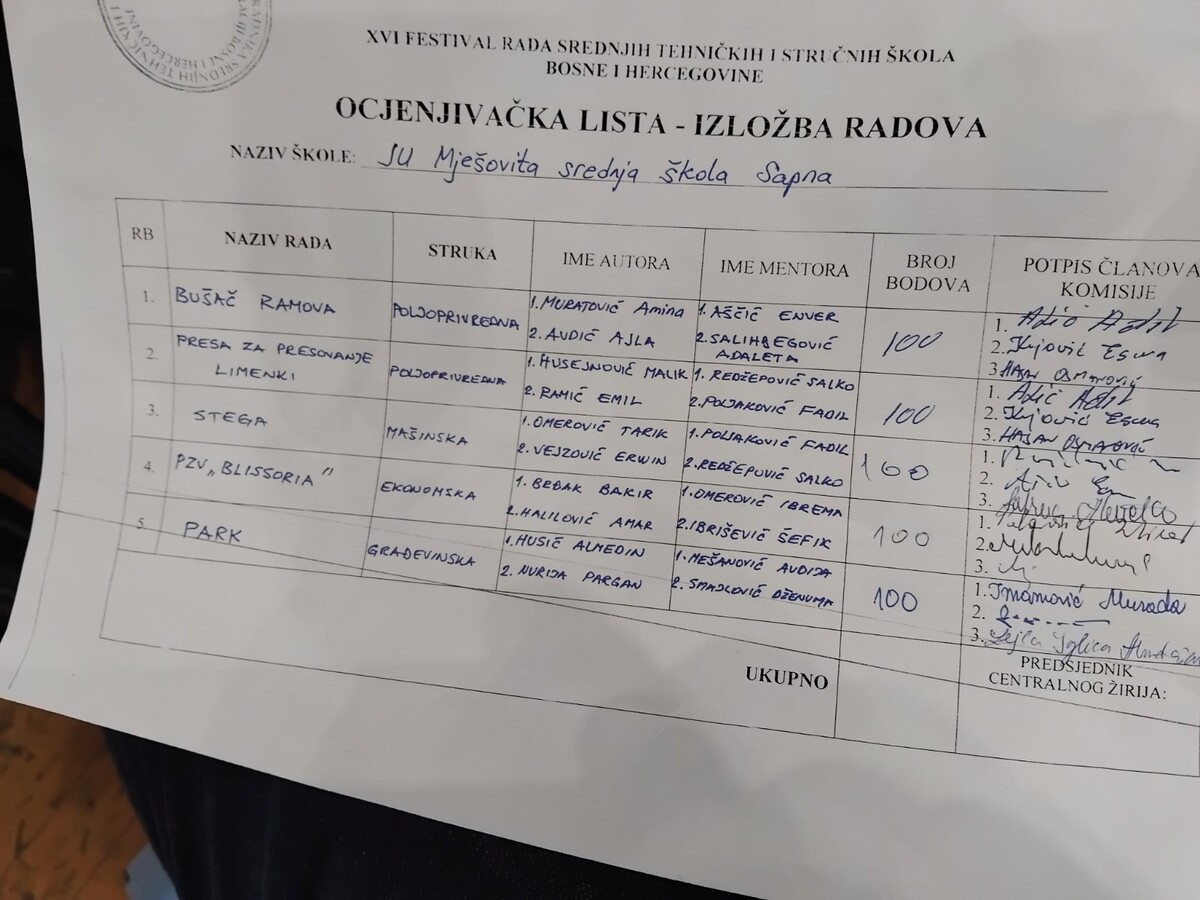 SREDNJIH TEHNIČKIH I
BOSNE I HERCEGOVINE
XVI FESTIVAL RADA SREDNJIH TEHNIČKIH I STRUČNIH ŠKOLA
BOSNE I HERCEGOVINE
OCJENJIVAČKA LISTA - IZLOŽBA RADOVA
NAZIV ŠKOLE: JU Mješovita srednja škola Sapna
RB NAZIV RADA STRUKA IME AUTORA IME MENTORA BROJ BODOVA POTPIS ČLANOVA KOMISIJE
1. BUŠAČ RAMOVA POLJOPRIVREDNA 1. MURATOVIĆ Amina 1. AŠČIĆ ENVER 100 1.
2. AUDIĆ AJLA 2. SALIHBEGOVIĆ ADALETA 2. Kujović Esma
3. HASAN OSMANOVIĆ
2. PRESA ZA PRESOVANJE LIMENKI POLJOPRIVREDNA 1. HUSEJNOVIĆ MALIK 1. REDŽEPOVIĆ SALKO 100 1.
2. RAMIĆ EMIL 2. POLJAKOVIĆ FADIL 2. Kujović Esma
3. HASAN OSMANOVIĆ
3. STEGA MAŠINSKA 1. OMEROVIĆ TARIK 1. POLJAKOVIĆ FADIL 100 1.
2. VEJZOVIĆ ERWIN 2. REDŽEPOVIĆ SALKO 2.
3.
4. PZV „BLISSORIA" EKONOMSKA 1. BRĐAK BAKIR 1. OMEROVIĆ IBREMA 100 1.
2. HALILOVIĆ AMAR 2. IBRIŠEVIĆ ŠEFIK 2.
3.
5. PARK GRAĐEVINSKA 1. HUSIĆ ALMEDIN 1. MEŠANOVIĆ AUDIJA 100 1. Imamović Murada
2. NURIJA PARGAN 2. SMAJLOVIĆ DŽENUMA 2.
3. Lejla
UKUPNO PREDSJEDNIK
CENTRALNOG ŽIRIJA: